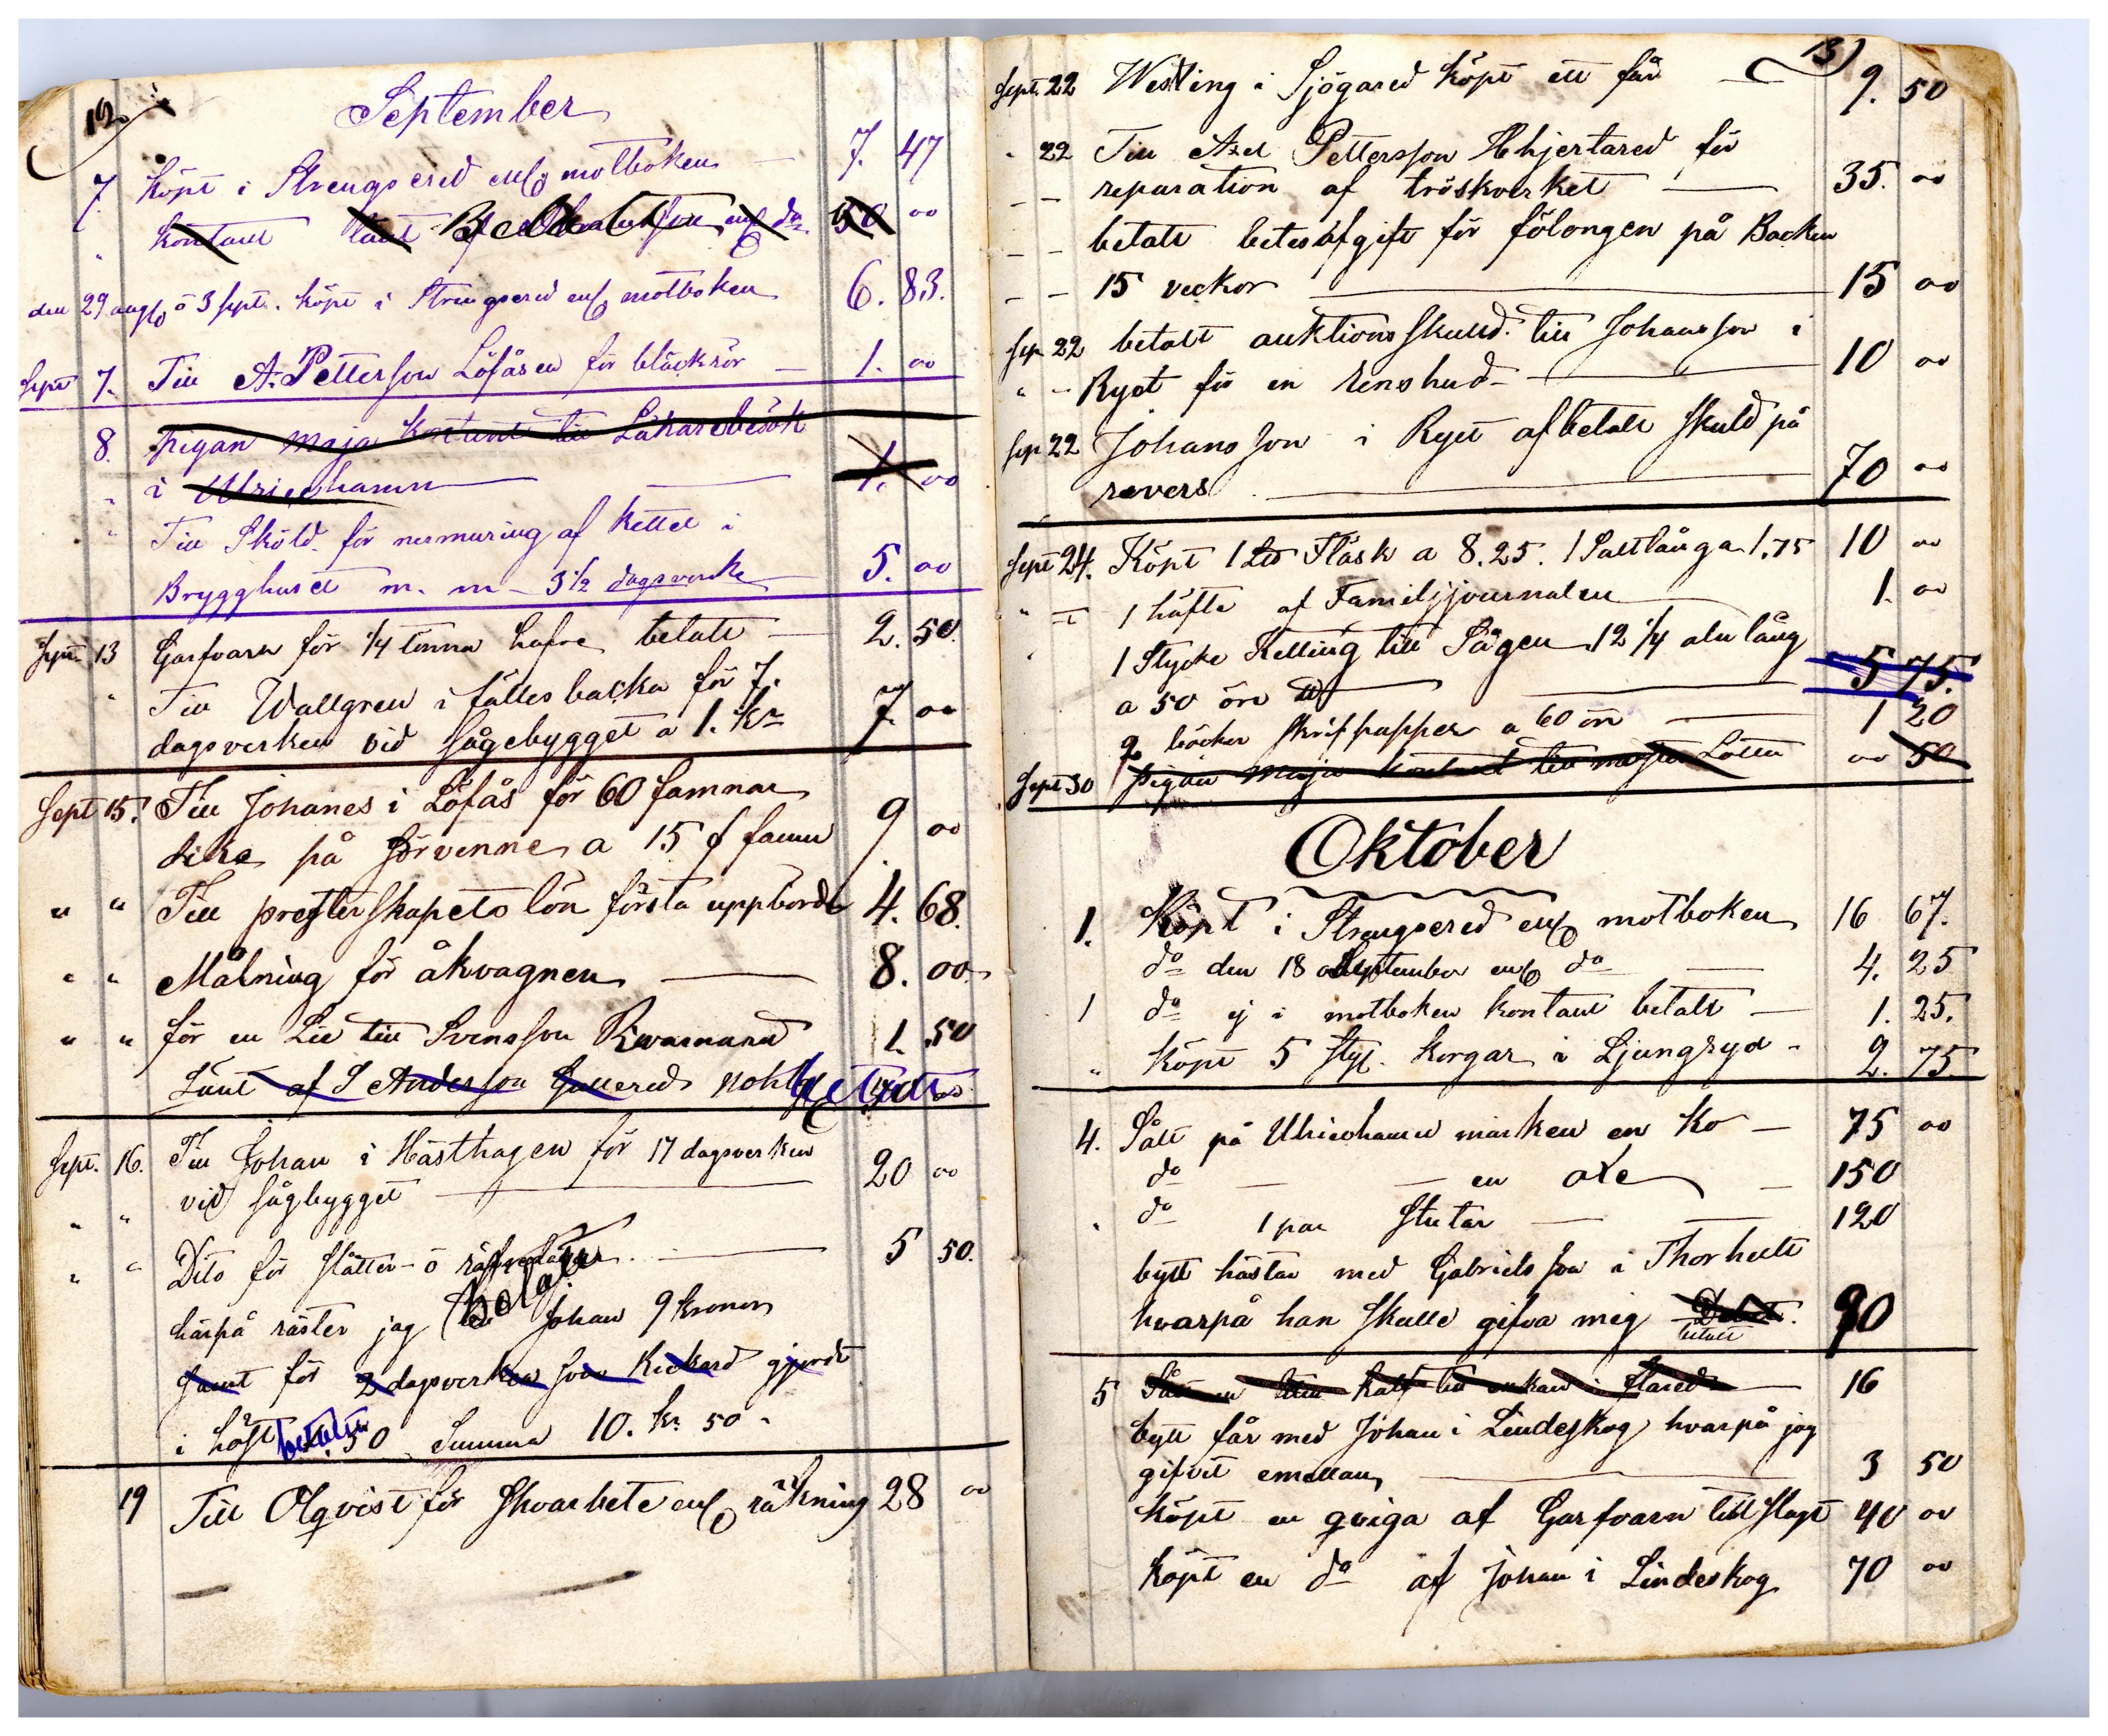 12
September
7. Köpt i Strengsered enl motboken — 7. 47
" kontant lånt af enl do 50 00
Betalt
den 29 aug o 3 sept. köpt i Strengsered enl motboken 6. 83.
Sept 7. Till A. Petterson Löfåsen för bläckrör — 1. 00
8. pigan Maja kontant till Läkarebesök
" i Ulricehamn — 1. 00
" Till Sköld för nermuring af kettel i
Brygghuset m. m — 3 1/2 dagsverke — 5. 00
Sept. 13 Garfvarn för 1/4 tunna hafre betalt — 2. 50.
" Till Wallgren i fällesbacka för 7.
dagsverken vid sågebygget a 1. kr 7 00
Sept 15. Till Johanes i Löfås för 60 famnar
dike på Sörvenne a 15 f famn 9 00
" " Till presterskapets lön första uppbörd 4. 68.
" " Målning för åkvagnen — 8. 00
" " för en Lie till Svensson Rivarmand 1. 50
Lånt af S Andersson Gullered
betalt
Sept. 16. Till Johan i Hästhagen för 17 dagsverken
" " vid sågbygget — 20 00
" " Dito för slåtter- o — 5 50.
härpå räster jag till Johan 9 kronor
betalt
samt för 2 dagsverken som Rickard gjordt
i höst 1. 50 Summa 10. kr 50
betalt
19 Till Olqvist för Skoarbete enl räkning 28 00
13
Sept. 22 Westling i Sjögared köpt ett får — 9. 50
" 22 Till Axel Pettersson Hhjertared för
— — reparation af tröskverket — 35. 00
— — betalt betesafgift för fölongen på Backen
— — 15 veckor — 15 00
Sep 22 betalt auktionsskuld till Johansson i
" — Ryet för en renshud — 10 00
Sep 22 Johansson i Ryet afbetalt skuld på
revers — 70 00
Sept 24. Köpt 1 Lb Fläsk a 8.25. 1 Saltlånga 1.75 10 00
" — 1 häfte af Familjjournalen 1. 00
" 1 Stycke Kelling till Sågen 12 1/4 aln lång
a 50 öre — 5 75.
2 böcker skrifpapper a 60 öre — 1 20
Sept 30 pigan Maja kontant till Lotta 00 50
Oktober
1. Köpt i Strengsered enl motboken 16 67.
do den 18 September enl do — 4. 25
1 do ej i motboken kontant betalt — 1. 25.
" köpt 5 sty. korgar i Ljungryd - 2. 75
4. Sålt på Ulricehamn marken en Ko — 75 00
do — — en oxe — 150
" do 1 par Stutar — — 120
bytt hästar med Gabrielsson i Thorhult
hvarpå han skulle gifva mig 90
betalt
5 Sålt en liten kalf till enkan i Flared — 16
bytt får med Johan i Lindeskog hvarpå jag
gifvit emellan — 3 50
köpt en qviga af Garfvarn till slagt 40 00
köpt en do af Johan i Lindeskog 70 00